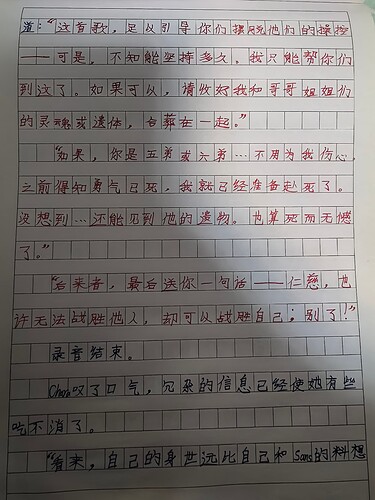 道：“这首歌，足以引导你们摆脱他们的操控
——可是，不知能坚持多久，我只能帮你们
到这了。如果可以，请收好我和哥哥姐姐们
的灵魂或遗体，合葬在一起。”
“如果，你是五弟或六弟…不用为我伤心，
之前得知勇气已死，我就已经准备赴死了。
没想到…还能见到他的遗物。也算死而无憾
了。”
“后来者，最后送你一句话——仁慈，也
许无法战胜他人，却可以战胜自己；别了！”
录音结束。
Chara叹了口气，冗杂的信息已经使她有些
吃不消了。
“看来，自己的身世远比自己和Sans的料想